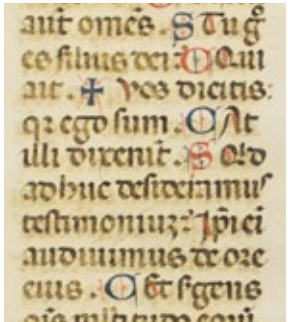 aut omēs. S Tu gͦ
es filius dei? C Qui
ait. ✝ Vos dicitis:
qꝛ ego sum. C At
illi dixerūt. S Quid
adhuc desideramus
testimoniuꝫ? Ip̄i ei
audiuimus de ore
eius. C Et s̄gens